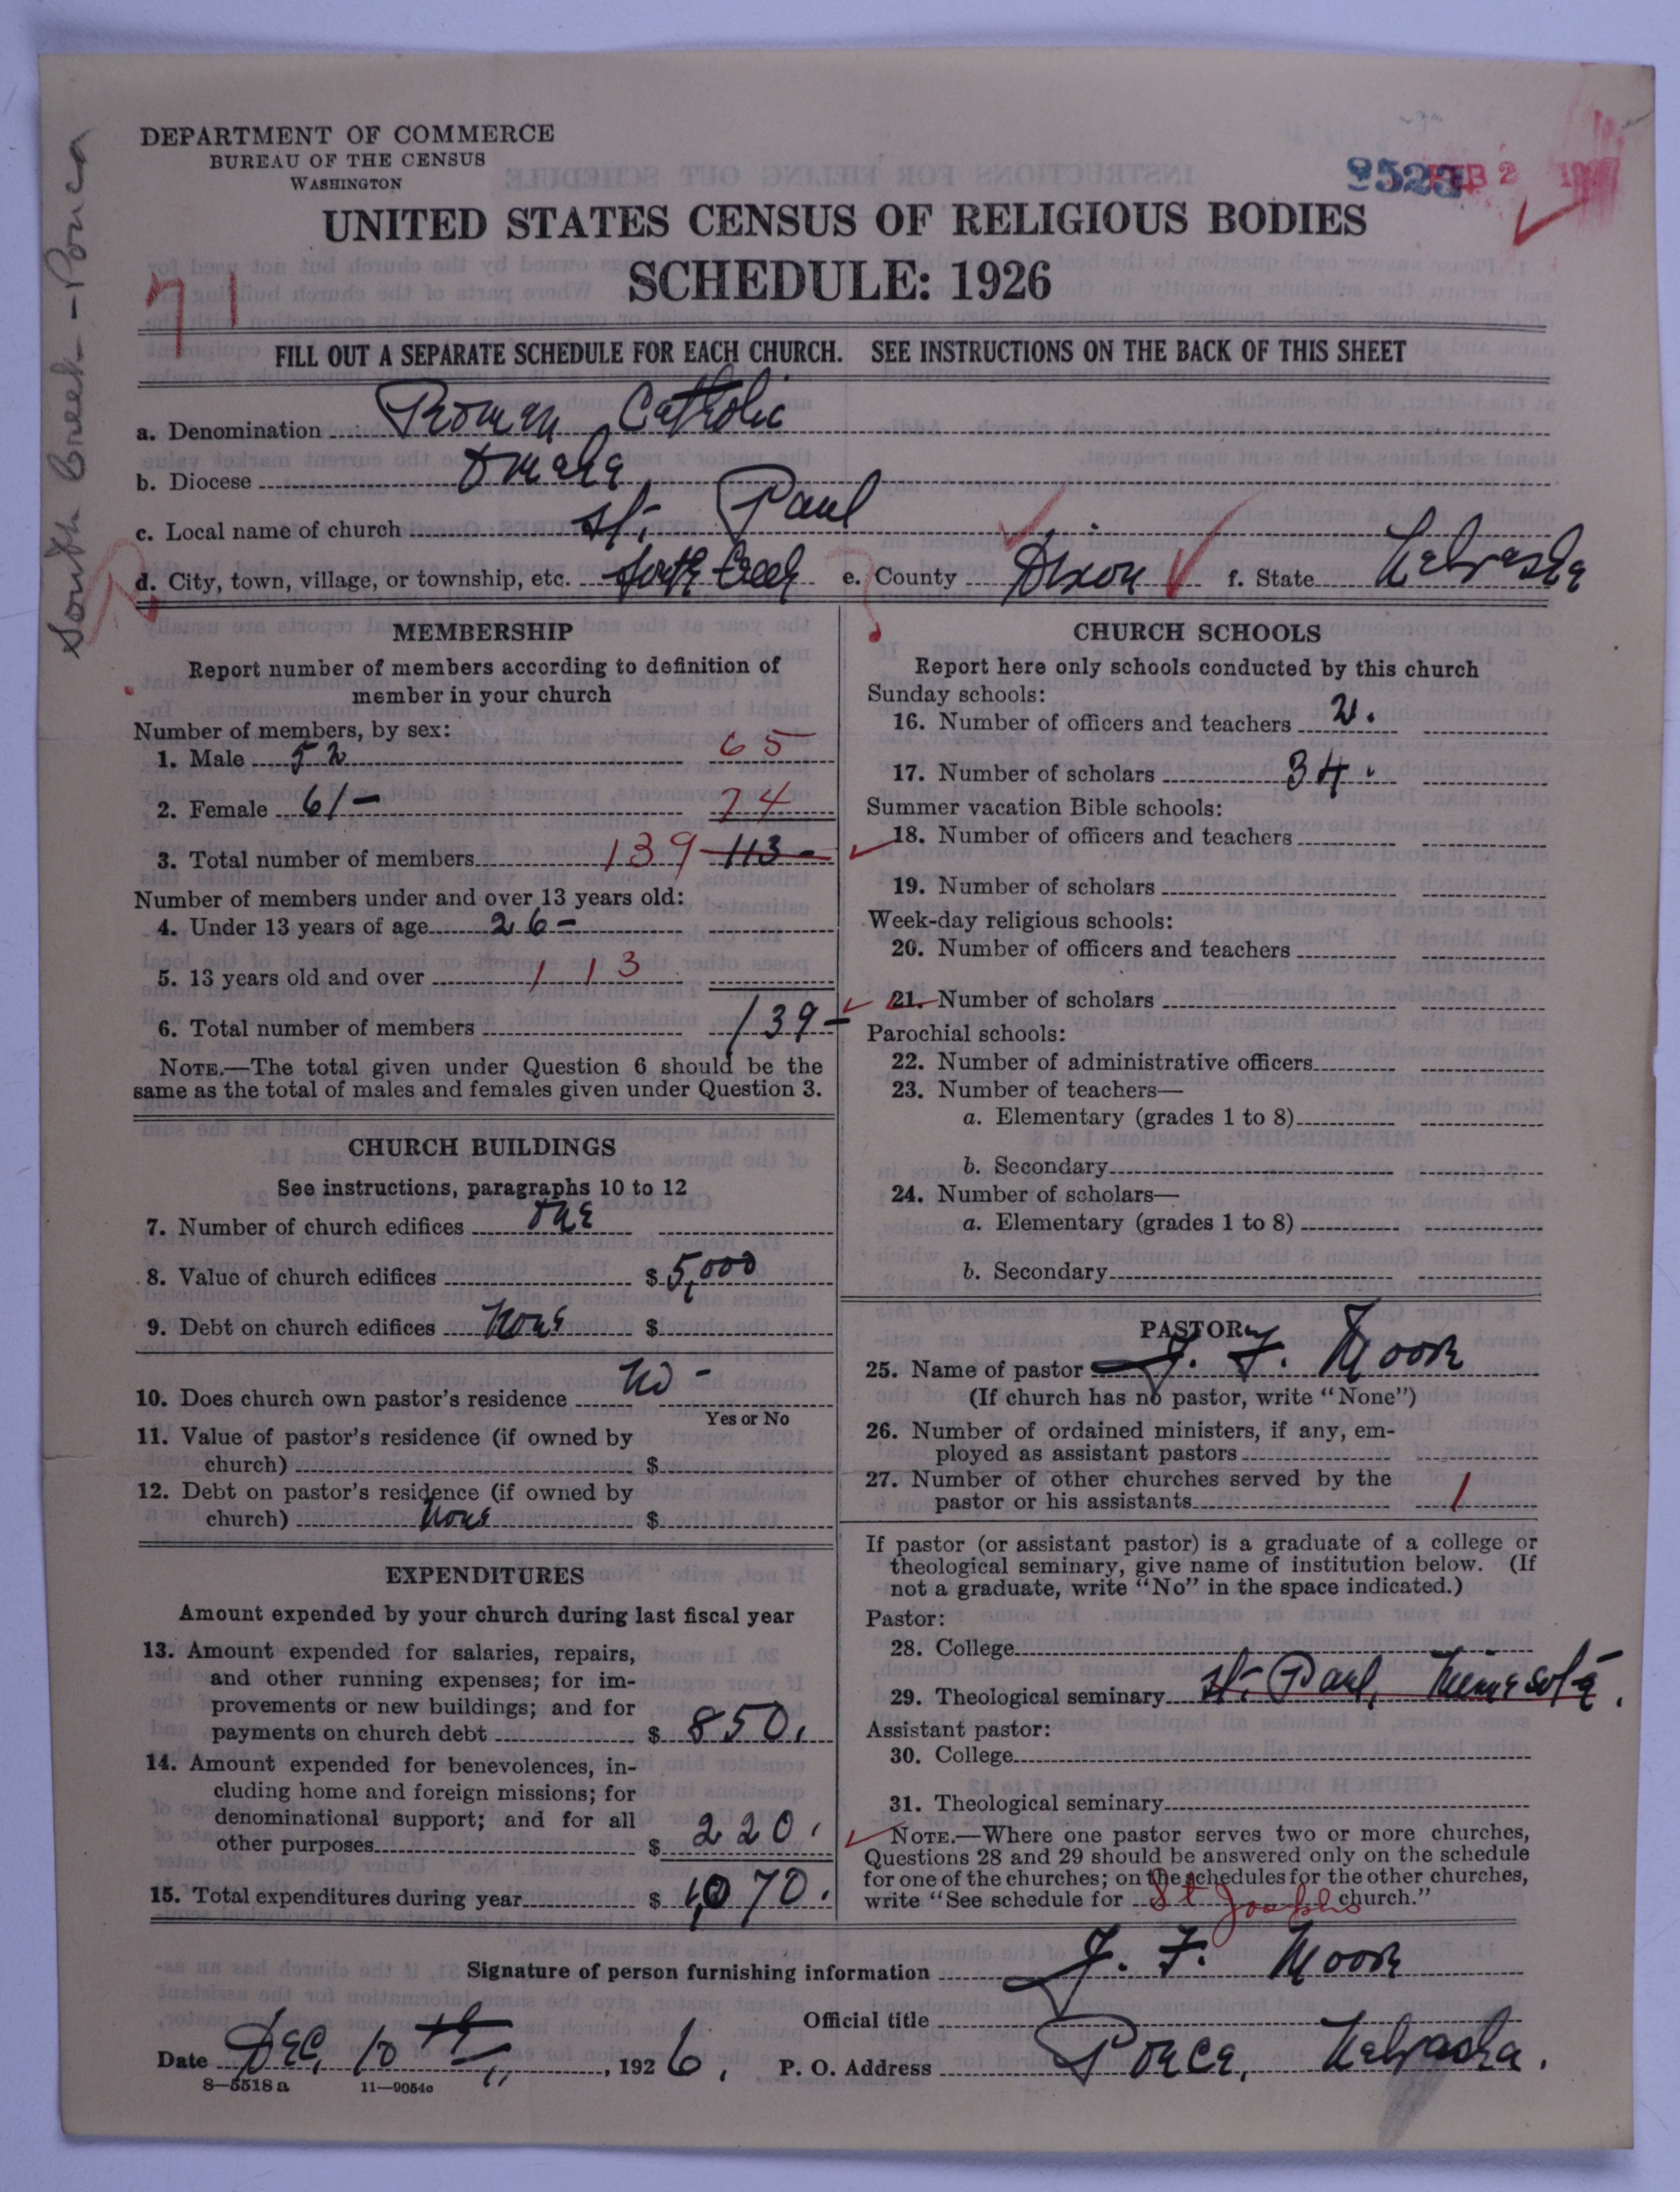 DEPARTMENT OF COMMERCE
BUREAU OF THE CENSUS
WASHINGTON
8523
FEB 2
UNITED STATES CENSUS OF RELIGIOUS BODIES
SCHEDULE: 1926
71
South Creek - Ponca
FILL OUT A SEPARATE SCHEDULE FOR EACH CHURCH. SEE INSTRUCTIONS ON THE BACK OF THIS SHEET
a. Denomination Roman Catholic
b. Diocese Omaha
c. Local name of church St. Paul
d. City, town, village, or township, etc. South Creek e. County Dixon f. State Nebraska
MEMBERSHIP
Report number of members according to definition of
member in your church
Number of members, by sex:
1. Male 52 65
2. Female 61- 74
3. Total number of members 139 113-
Number of members under and over 13 years old:
4. Under 13 years of age 26-
5. 13 years old and over 113
6. Total number of members 139-
NOTE.—The total given under Question 6 should be the
same as the total of males and females given under Question 3.
CHURCH BUILDINGS
See instructions, paragraphs 10 to 12
7. Number of church edifices one
8. Value of church edifices $ 5,000
9. Debt on church edifices None $
10. Does church own pastor's residence No -
Yes or No
11. Value of pastor's residence (if owned by
church) $
12. Debt on pastor's residence (if owned by
church) None $
EXPENDITURES
Amount expended by your church during last fiscal year
13. Amount expended for salaries, repairs,
and other running expenses; for im-
provements or new buildings; and for
payments on church debt $ 850.
14. Amount expended for benevolences, in-
cluding home and foreign missions; for
denominational support; and for all
other purposes $ 220.
15. Total expenditures during year $ 1,070.
CHURCH SCHOOLS
Report here only schools conducted by this church
Sunday schools:
16. Number of officers and teachers 2.
17. Number of scholars 34.
Summer vacation Bible schools:
18. Number of officers and teachers
19. Number of scholars
Week-day religious schools:
20. Number of officers and teachers
21. Number of scholars
Parochial schools:
22. Number of administrative officers
23. Number of teachers—
a. Elementary (grades 1 to 8)
b. Secondary
24. Number of scholars—
a. Elementary (grades 1 to 8)
b. Secondary
PASTOR
25. Name of pastor J. F. Moore
(If church has no pastor, write "None")
26. Number of ordained ministers, if any, em-
ployed as assistant pastors
27. Number of other churches served by the
pastor or his assistants 1
If pastor (or assistant pastor) is a graduate of a college or
theological seminary, give name of institution below. (If
not a graduate, write "No" in the space indicated.)
Pastor:
28. College
29. Theological seminary St. Paul, Minnesota.
Assistant pastor:
30. College
31. Theological seminary
NOTE.—Where one pastor serves two or more churches,
Questions 28 and 29 should be answered only on the schedule
for one of the churches; on the schedules for the other churches,
write "See schedule for St Josephs church."
Signature of person furnishing information J. F. Moore
Official title
Date Dec. 10th, 1926. P. O. Address Ponca, Nebraska.
8—5518a 11—9054o